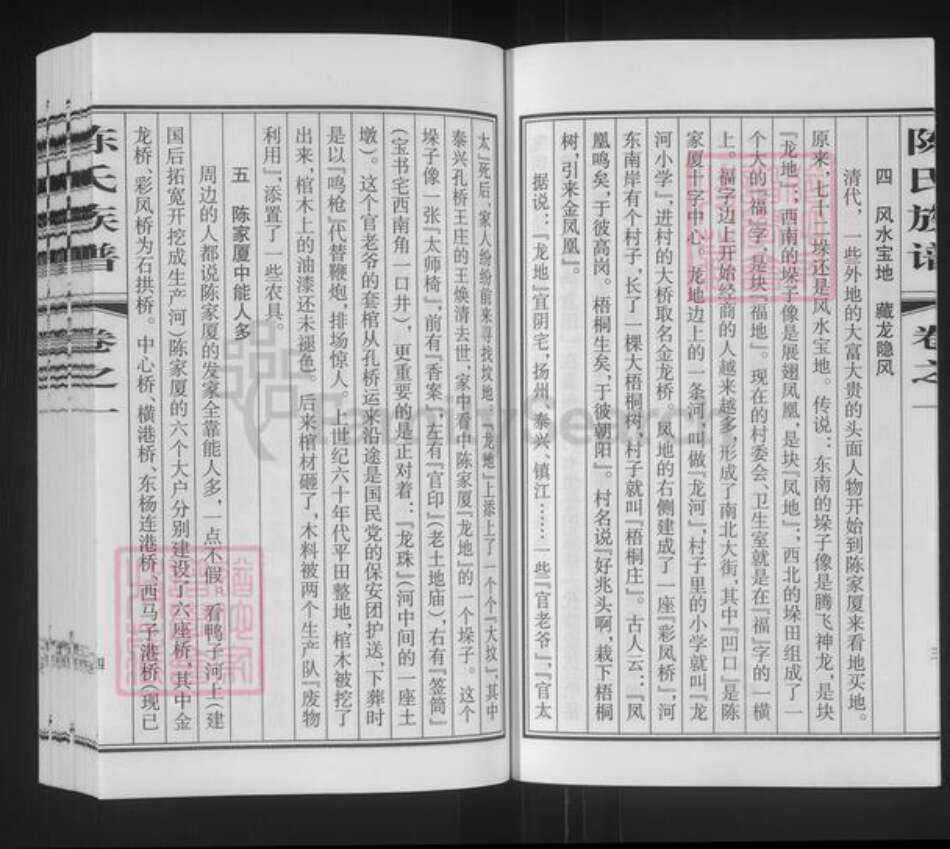 陈氏族谱 卷之一
四 风水宝地 藏龙隐风
清代，一些外地的大富大贵的头面人物开始到陈家厦来看地买地。
原来，七十二垛还是风水宝地。传说：东南的垛子像是腾飞神龙，是块
『龙地』；西南的垛子像是展翅凤凰，是块『凤地』；西北的垛田组成了一
个大的『福』字，是块『福地』。现在的村委会、卫生室就是在『福』字的一横
上。福字边上开始经商的人越来越多，形成了南北大街，其中『凹口』是陈
家厦十字中心。龙地边上的一条河，叫做『龙河』，村子里的小学就叫『龙
河小学』，进村的大桥取名金龙桥，凤地的右侧建成了一座『彩凤桥』，河
东南岸有个村子，长了一棵大梧桐树，村子就叫『梧桐庄』。古人云：『凤
凰鸣矣，于彼高岗。梧桐生矣，于彼朝阳』。村名说『好兆头啊，栽下梧桐
树，引来金凤凰』。
据说：『龙地』宜阴宅，扬州、泰兴、镇江……一些『官老爷』、『官太
太』死后，家人纷纷前来寻找坟地，『龙地』上添上了一个个『大坟』，其中
泰兴孔桥王庄的王焕清去世，家中看中陈家厦『龙地』的一个垛子。这个
垛子像一张『太师椅』，前有『香案』，左有『官印』（老土地庙），右有『签筒』
（宝书宅西南角一口井），更重要的是正对着：『龙珠』（河中间的一座土
墩）。这个官老爷的套棺从孔桥运来沿途是国民党的保安团护送、下葬时
是以『鸣枪』代替鞭炮，排场惊人。上世纪六十年代平田整地，棺木被挖了
出来，棺木上的油漆还未褪色，后来棺材砸了，木料被两个生产队『废物
利用』，添置了一些农具。
五 陈家厦中能人多
周边的人都说陈家厦的发家全靠能人多，一点不假。看鸭子河上（建
国后拓宽开挖成生产河）陈家厦的六个大户分别建设了六座桥，其中金
龙桥、彩凤桥为石拱桥。中心桥、横港桥、东杨连港桥、西马子港桥（现已
四
陈氏族谱 卷之一